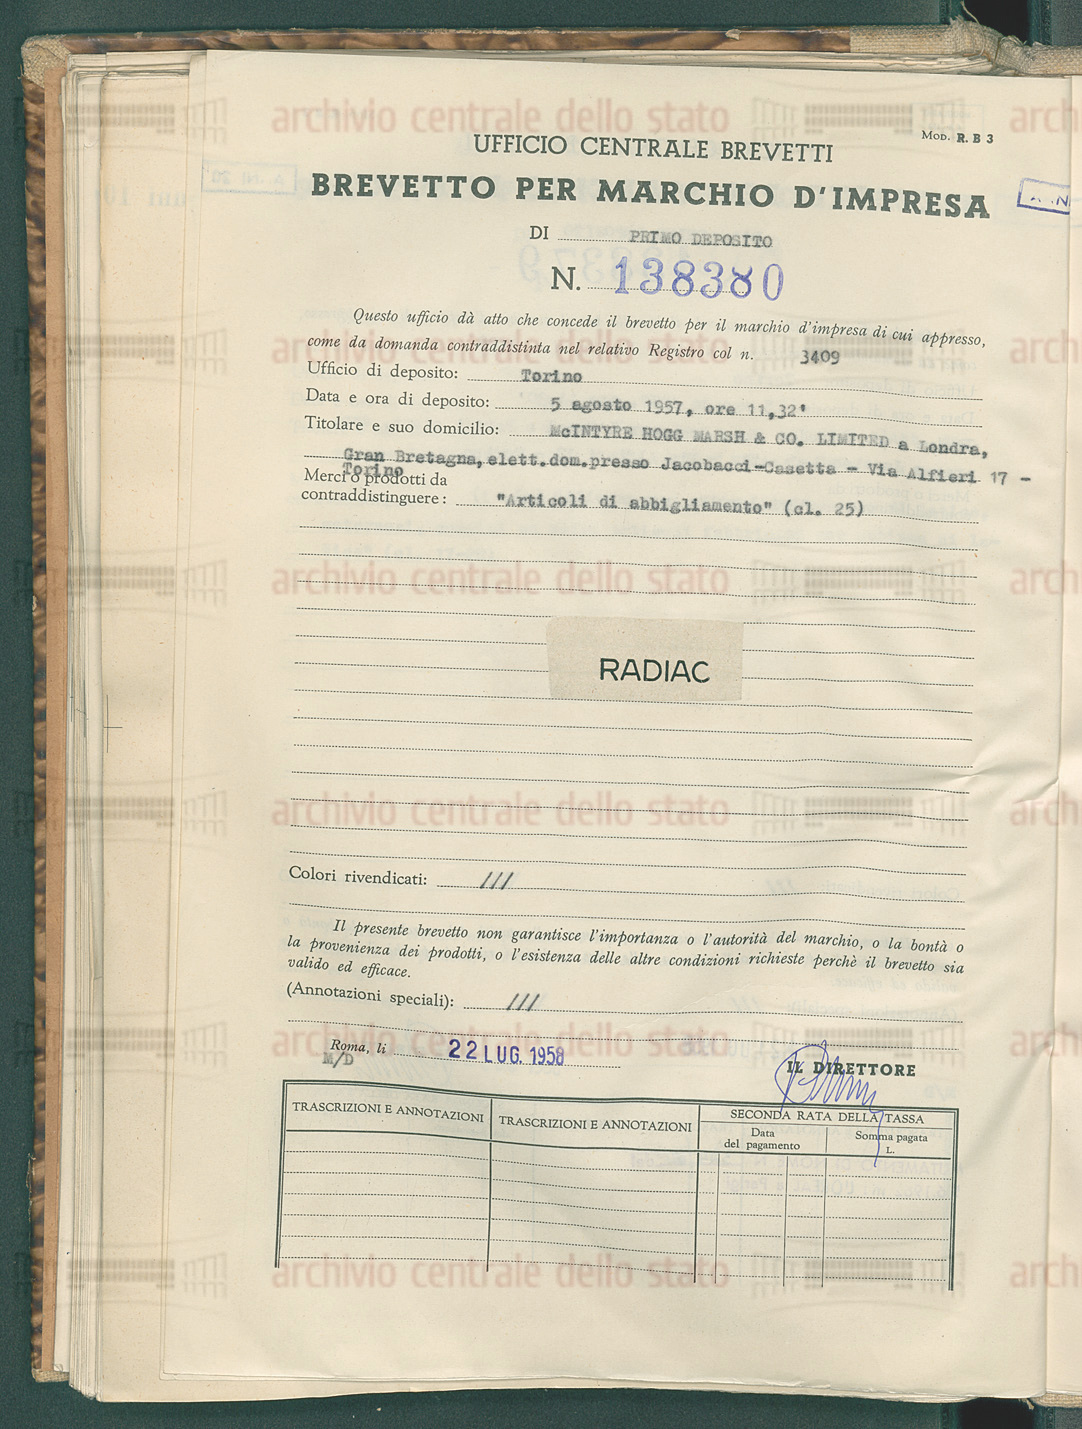 Mod. R. B 3
UFFICIO CENTRALE BREVETTI
BREVETTO PER MARCHIO D'IMPRESA
DI PRIMO DEPOSITO
N. 138380
Questo ufficio dà atto che concede il brevetto per il marchio d'impresa di cui appresso,
come da domanda contraddistinta nel relativo Registro col n. 3409
Ufficio di deposito: Torino
Data e ora di deposito: 5 agosto 1957, ore 11,32'
Titolare e suo domicilio: McINTYRE HOGG MARSH & CO. LIMITED a Londra,
Gran Bretagna, elett.dom.presso Jacobacci-Casetta - Via Alfieri 17 -
Torino
Merci o prodotti da
contraddistinguere: "Articoli di abbigliamento" (cl. 25)
RADIAC
Colori rivendicati: ///
Il presente brevetto non garantisce l'importanza o l'autorità del marchio, o la bontà o
la provenienza dei prodotti, o l'esistenza delle altre condizioni richieste perchè il brevetto sia
valido ed efficace.
(Annotazioni speciali): ///
Roma, li 22 LUG. 1958
M/D
IL DIRETTORE
TRASCRIZIONI E ANNOTAZIONI
TRASCRIZIONI E ANNOTAZIONI
SECONDA RATA DELLA TASSA
Data
del pagamento
Somma pagata
L.
archivio centrale dello stato
archivio centrale dello stato
archivio centrale dello stato
archivio centrale dello stato
archivio centrale dello stato
archivio centrale dello stato